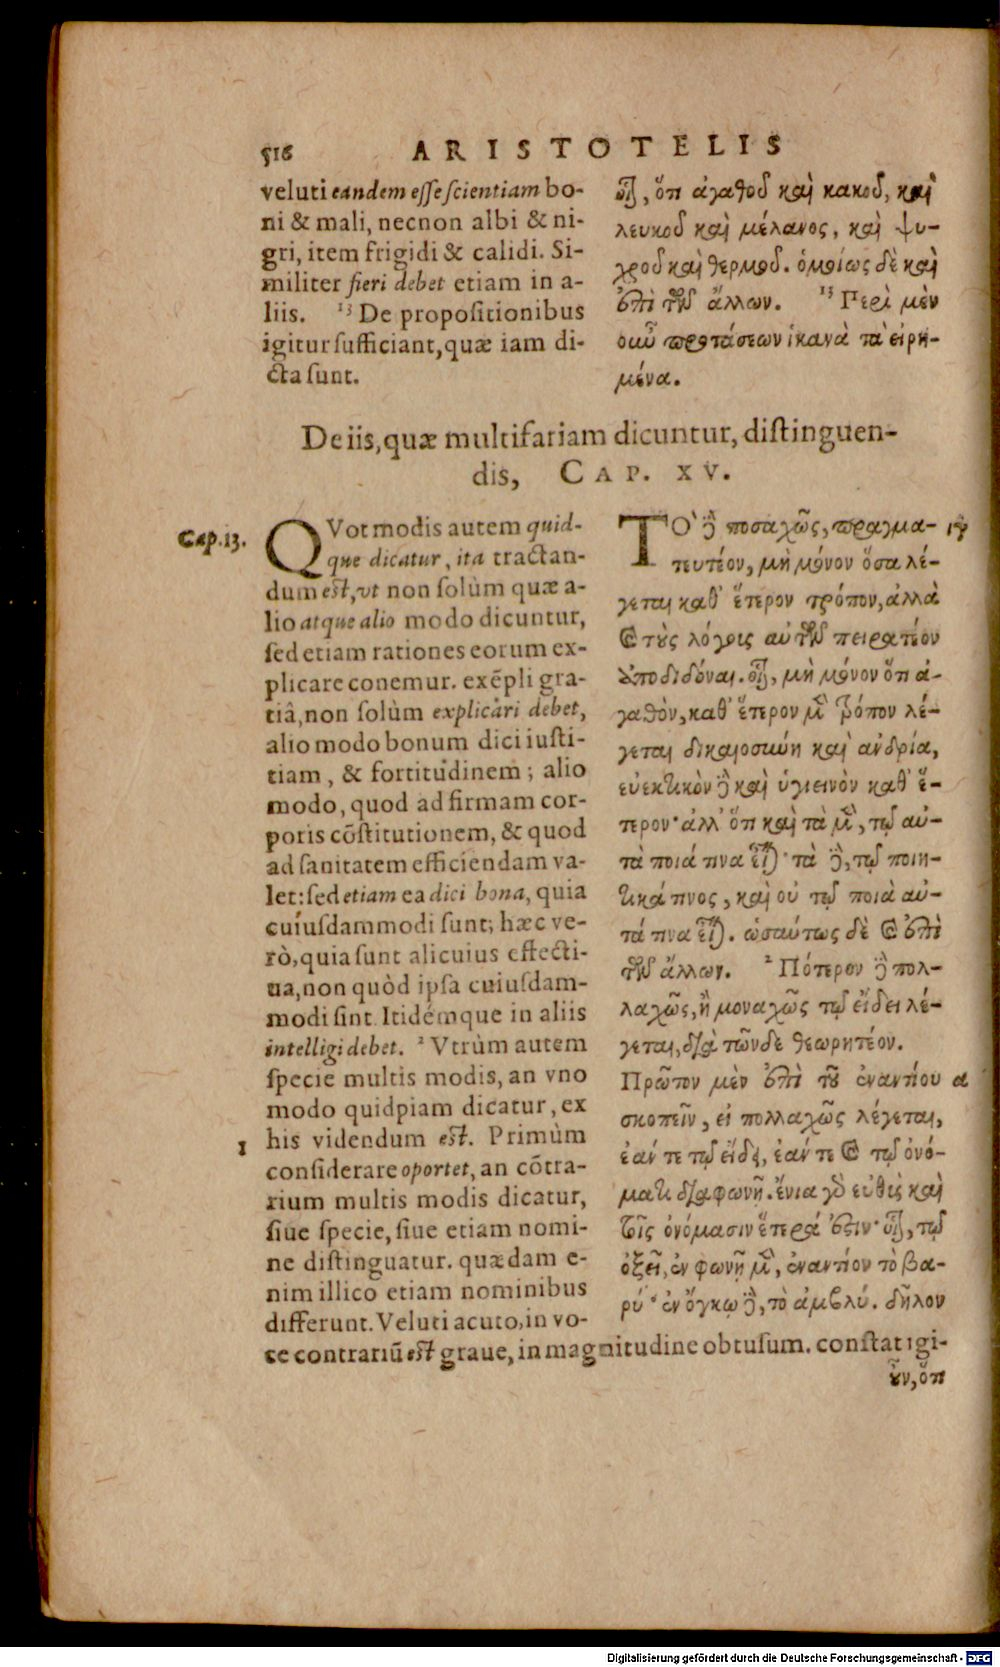 516 ARISTOTELIS
veluti eandem esse scientiam bo-
ni & mali, necnon albi & ni-
gri, item frigidi & calidi. Si-
militer fieri debet etiam in a-
liis. 13 De propositionibus
igitur sufficiant, quæ iam di-
cta sunt.
οἷον, ὅτι ἀγαθοῦ καὶ κακοῦ, καὶ
λευκοῦ καὶ μέλανος, καὶ ψυ-
χροῦ καὶ θερμοῦ. ὁμοίως δὲ καὶ
ἐπὶ τῶν ἄλλων. 13 Περὶ μὲν
οὖν προτάσεων ἱκανὰ τὰ εἰρη-
μένα.
De iis, quæ multifariam dicuntur, distinguen-
dis, CAP. XV.
Cap. 13.
QVot modis autem quid-
que dicatur, ita tractan-
dum est, vt non solùm quæ a-
lio atque alio modo dicuntur,
sed etiam rationes eorum ex-
plicare conemur. exẽpli gra-
tiâ, non solùm explicari debet,
alio modo bonum dici iusti-
tiam, & fortitudinem; alio
modo, quod ad firmam cor-
poris cõstitutionem, & quod
ad sanitatem efficiendam va-
let: sed etiam ea dici bona, quia
cuiusdammodi sunt; hæc ve-
rò, quia sunt alicuius effecti-
ua, non quòd ipsa cuiusdam-
modi sint. Itidémque in aliis
intelligi debet. 2 Vtrùm autem
specie multis modis, an vno
modo quidpiam dicatur, ex
1 his videndum est. Primùm
considerare oportet, an cõtra-
rium multis modis dicatur,
siue specie, siue etiam nomi-
ne distinguatur. quædam e-
nim illico etiam nominibus
differunt. Veluti acuto, in vo-
ce contrariũ est graue, in magnitudine obtusum. constat igi-
ΤΟ δὲ ποσαχῶς, πραγμα- ιγ
τευτέον, μὴ μόνον ὅσα λέ-
γεται καθ' ἕτερον τρόπον, ἀλλὰ
καὶ τοὺς λόγους αὐτῶν πειρατέον
ἀποδιδόναι. οἷον, μὴ μόνον ὅτι ἀ-
γαθὸν, καθ' ἕτερον μὲν τρόπον λέ-
γεται δικαιοσύνη καὶ ἀνδρία,
εὐεκτικὸν δὲ καὶ ὑγιεινὸν καθ' ἕ-
τερον· ἀλλ' ὅτι καὶ τὰ μὲν, τῷ αὐ-
τὰ ποιά τινα εἶναι· τὰ δὲ, τῷ ποιη-
τικά τινος, καὶ οὐ τῷ ποιὰ αὐ-
τά τινα εἶναι. ὡσαύτως δὲ καὶ ἐπὶ
τῶν ἄλλων. 2 Πότερον δὲ πολ-
λαχῶς, ἢ μοναχῶς τῷ εἴδει λέ-
γεται, διὰ τῶνδε θεωρητέον.
Πρῶτον μὲν ἐπὶ τοῦ ἐναντίου α
σκοπεῖν, εἰ πολλαχῶς λέγεται,
ἐάν τε τῷ εἴδει, ἐάν τε καὶ τῷ ὀνό-
ματι διαφωνῇ. ἔνια γὰρ εὐθὺς καὶ
τοῖς ὀνόμασιν ἕτερά ἐστιν· οἷον, τῷ
ὀξεῖ, ἐν φωνῇ μὲν, ἐναντίον τὸ βα-
ρύ· ἐν ὄγκῳ δὲ, τὸ ἀμβλύ. δῆλον
οὖν, ὅτι
Digitalisierung gefördert durch die Deutsche Forschungsgemeinschaft - DFG